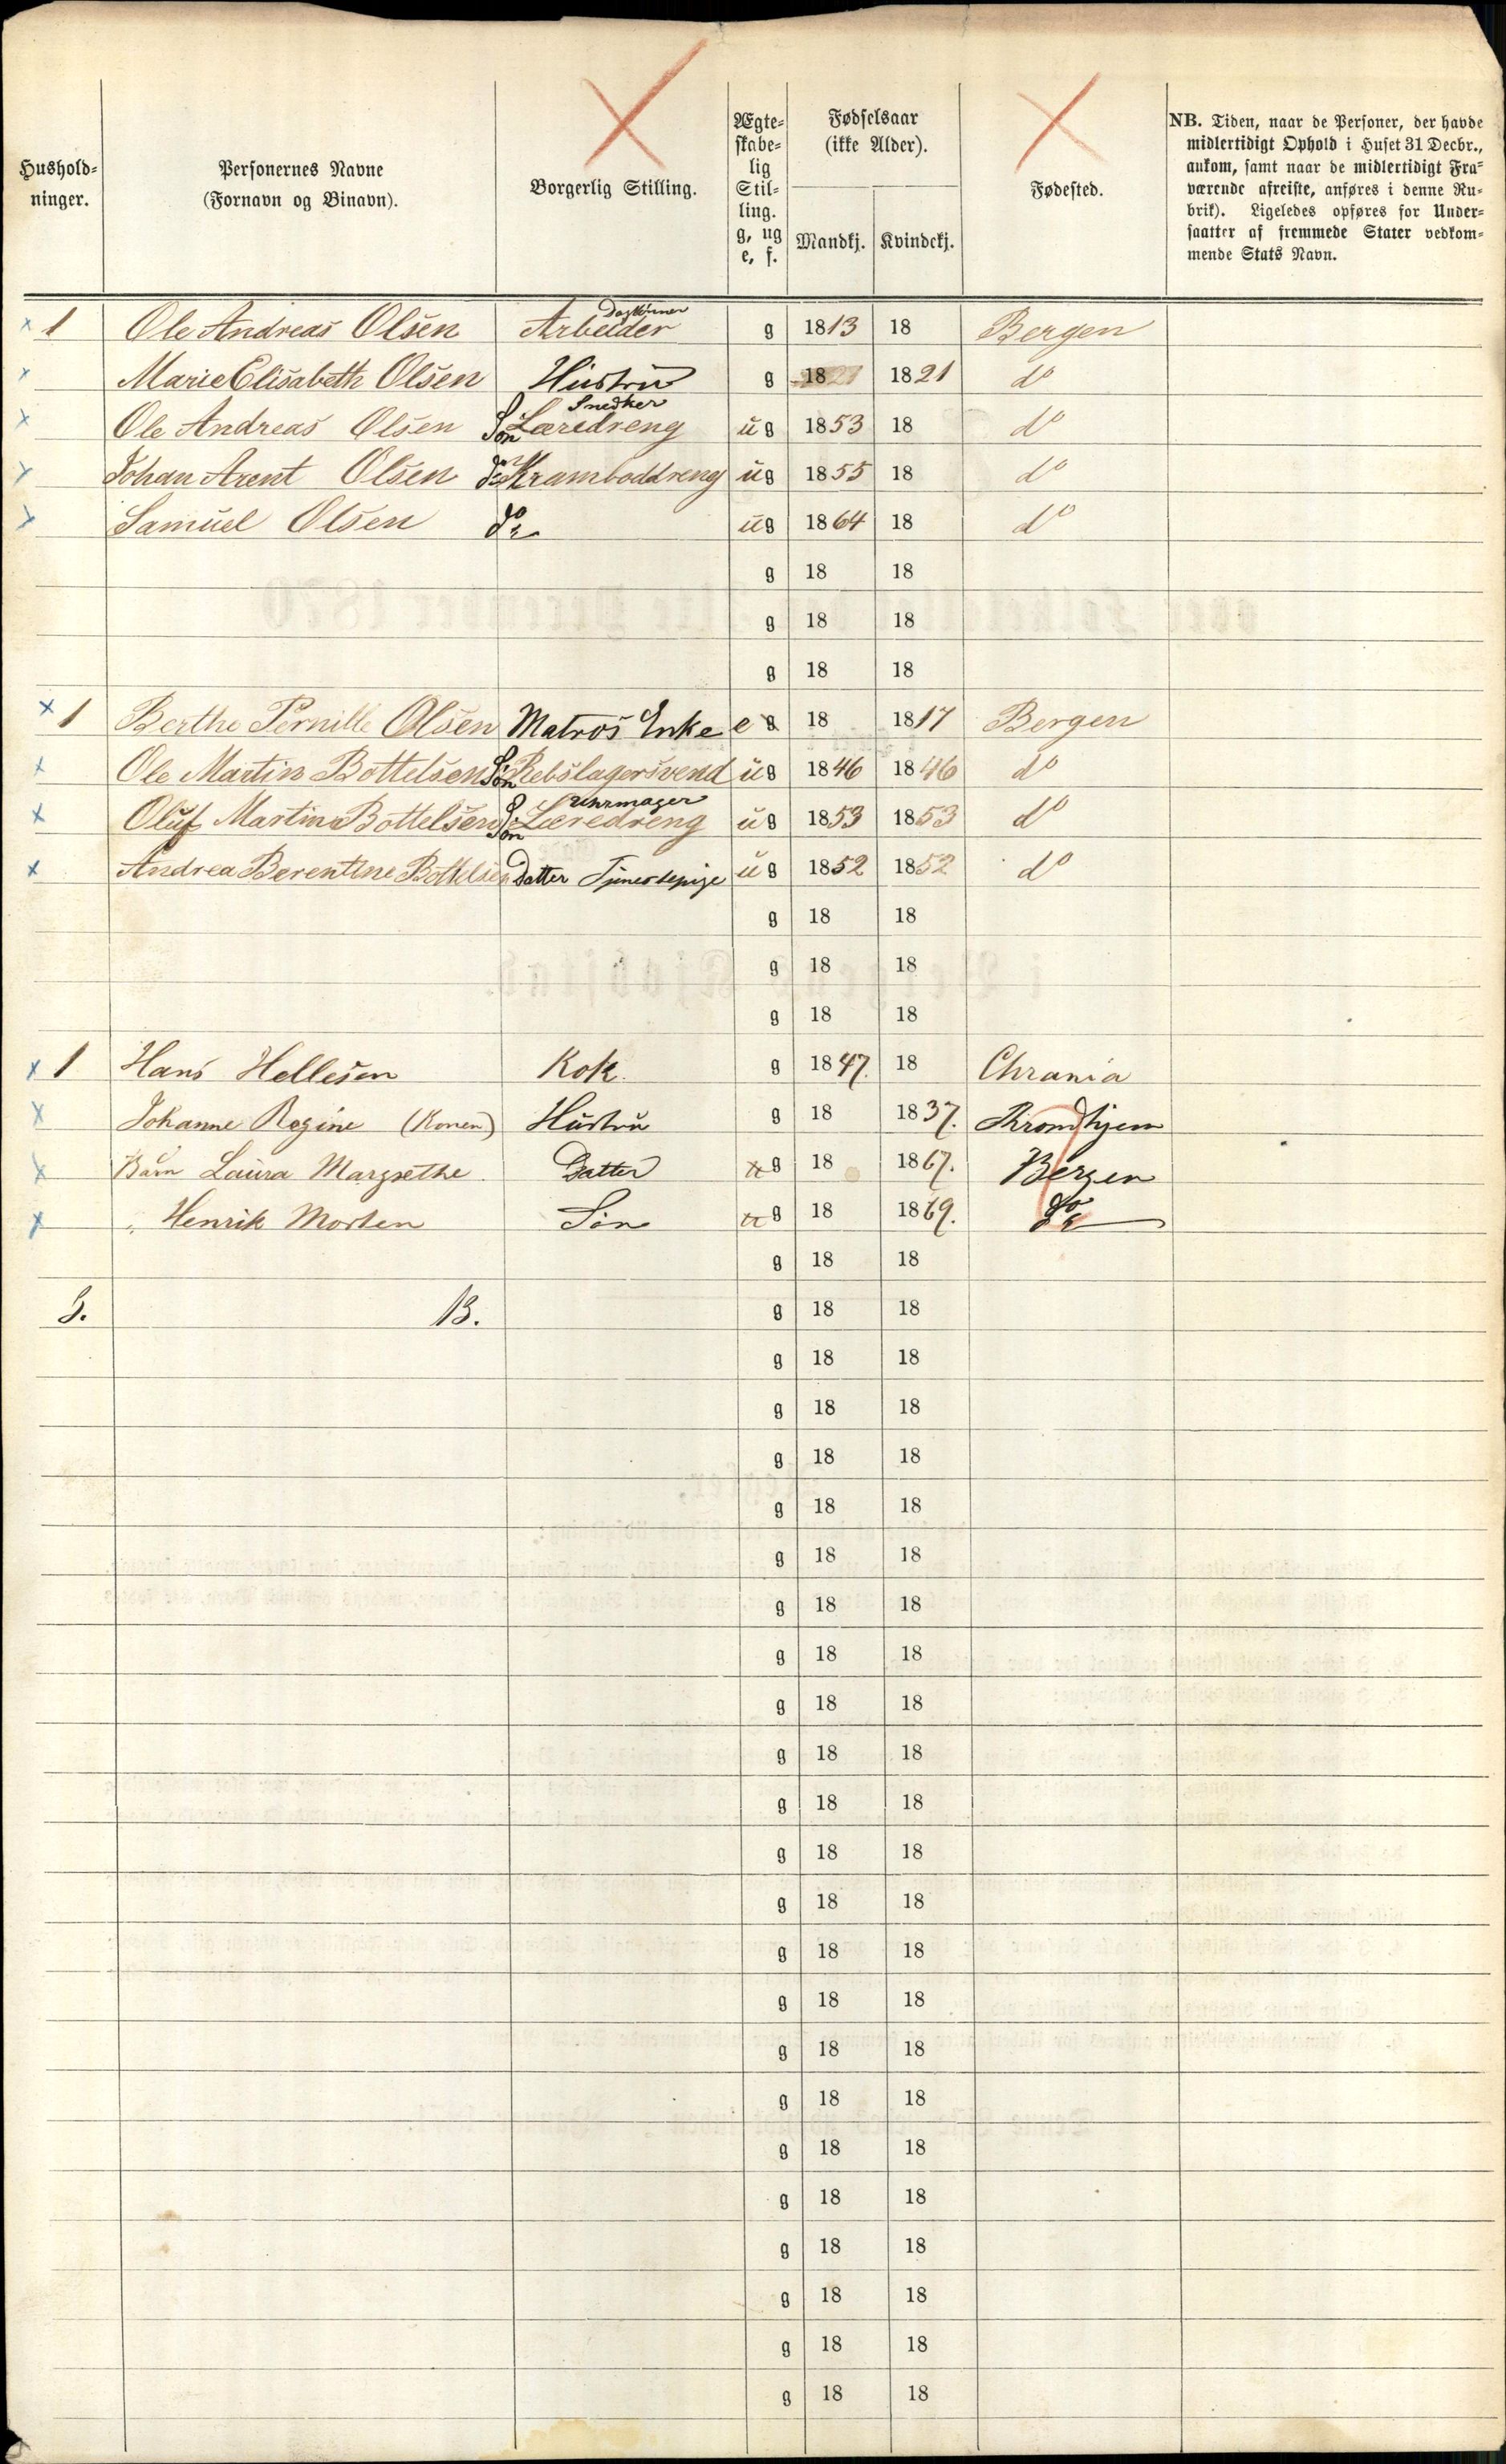 Hushold-
ninger.
Personernes Navne
(Fornavn og Binavn).
Borgerlig Stilling.
Ægte-
skabe-
lig
Stil-
ling.
g, ug
e, f.
Fødselsaar
(ikke Alder).
Mandkj. Kvindekj.
Fødested.
NB. Tiden, naar de Personer, der havde
midlertidigt Ophold i Huset 31 Decbr.,
ankom, samt naar de midlertidigt Fra-
værende afreiste, anføres i denne Ru-
brik). Ligeledes opføres for Under-
saatter af fremmede Stater vedkom-
mende Stats Navn.
Daglönner
x 1 Ole Andreas Olsen Arbeider g 1813 18 Bergen
x Marie Elisabeth Olsen Hustru g 1821 1821 do
Snedker
x Ole Andreas Olsen Søn Læredreng ug 1853 18 do
x Johan Arent Olsen do Kramboddreng ug 1855 18 do
x Samuel Olsen do ug 1864 18 do
g 18 18
g 18 18
g 18 18
x 1 Berthe Pernille Olsen Matros Enke e g 18 1817 Bergen
x Ole Martin Bottelsen Søn Rebslagersvend ug 1846 1846 do
Uhrmager
x Oluf Martin Bottelsen Søn Læredreng ug 1853 1853 do
x Andrea Berentine Bottelsen Datter Tjenestepige ug 1852 1852 do
g 18 18
g 18 18
g 18 18
x 1 Hans Hellesen Kok. g 1847. 18 Chrania
x Johanne Regine (Konen) Hustru g 18 1837. Throndhjem
x Barn Laura Margrethe. Datter ug 18 1867. Bergen
x " Henrik Morten Søn ug 18 1869. do
g 18 18
3. 13. g 18 18
g 18 18
g 18 18
g 18 18
g 18 18
g 18 18
g 18 18
g 18 18
g 18 18
g 18 18
g 18 18
g 18 18
g 18 18
g 18 18
g 18 18
g 18 18
g 18 18
g 18 18
g 18 18
g 18 18
g 18 18
g 18 18
g 18 18